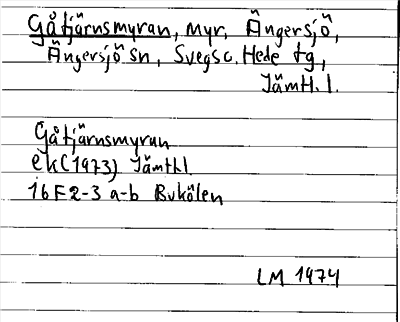 Gåtjärnsmyran, myr, Ängersjö,
Ängersjö sn, Svegs c. Hede tg,
Jämtl. l.
Gåtjärnsmyran
ek (1973) Jämtl.l
16F 2-3 a-b Bukölen
LM 1974